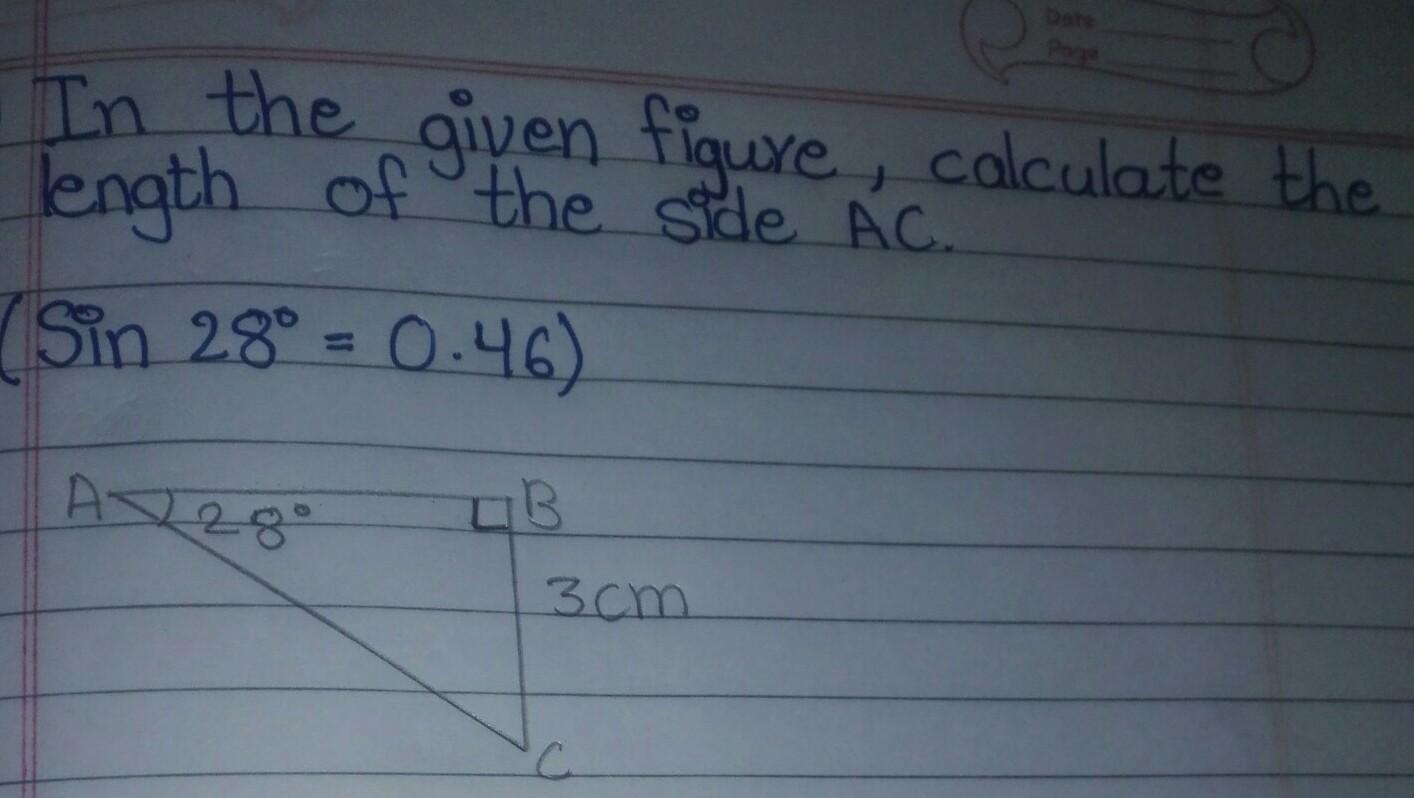 Date
Page
In the given figure, calculate the
length of the side AC.
(Sin 28° = 0.46)
A 28° B
3cm
C